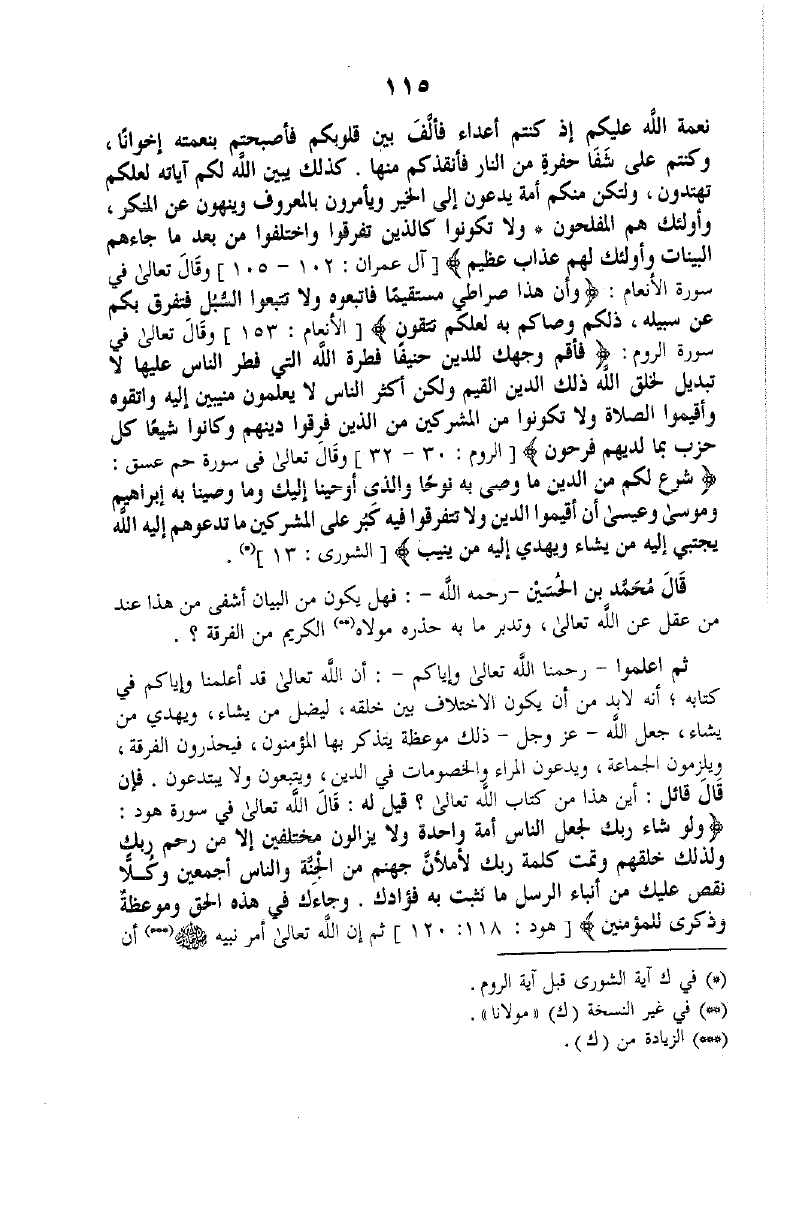 ١١٥
نعمة اللَّه عليكم إذ كنتم أعداء فألَّفَ بين قلوبكم فأصبحتم بنعمته إخوانًا ،
وكنتم على شَفَا حفرةٍ من النار فأنقذكم منها . كذلك يبين اللَّه لكم آياته لعلكم
تهتدون ، ولتكن منكم أمة يدعون إلى الخير ويأمرون بالمعروف وينهون عن المنكر ،
وأولئك هم المفلحون * ولا تكونوا كالذين تفرقوا واختلفوا من بعد ما جاءهم
البينات وأولئك لهم عذاب عظيم ﴾ [ آل عمران : ١٠٢ – ١٠٥ ] وقَالَ تعالىٰ في
سورة الأنعام : ﴿ وأن هذا صراطي مستقيمًا فاتبعوه ولا تتبعوا السُّبُل فتفرق بكم
عن سبيله ، ذلكم وصاكم به لعلكم تتقون ﴾ [ الأنعام : ١٥٣ ] وقَالَ تعالىٰ في
سورة الروم : ﴿ فأقم وجهك للدين حنيفًا فطرة اللَّه التي فطر الناس عليها لا
تبديل لخلق اللَّه ذلك الدين القيم ولكن أكثر الناس لا يعلمون منيبين إليه واتقوه
وأقيموا الصلاة ولا تكونوا من المشركين من الذين فرقوا دينهم وكانوا شيعًا كل
حزب بما لديهم فرحون ﴾ [ الروم : ٣٠ – ٣٢ ] وقَالَ تعالىٰ في سورة حم عسق :
﴿ شرع لكم من الدين ما وصى به نوحًا والذى أوحينا إليك وما وصينا به إبراهيم
وموسىٰ وعيسىٰ أن أقيموا الدين ولا تتفرقوا فيه كَبُر على المشركين ما تدعوهم إليه اللَّه
يجتبي إليه من يشاء ويهدي إليه من ينيب ﴾ [ الشورى : ١٣ ](*) .
قَالَ مُحَمَّد بن الحُسَيْن –رحمه اللَّه – : فهل يكون من البيان أشفى من هذا عند
من عقل عن اللَّه تعالىٰ ، وتدبر ما به حذره مولاه(**) الكريم من الفرقة ؟ .
ثم اعلموا – رحمنا اللَّه تعالىٰ وإياكم – : أن اللَّه تعالىٰ قد أعلمنا وإياكم في
كتابه ؛ أنه لابد من أن يكون الاختلاف بين خلقه ، ليضل من يشاء ، ويهدي من
يشاء ، جعل اللَّه – عز وجل – ذلك موعظة يتذكر بها المؤمنون ، فيحذرون الفرقة ،
ويلزمون الجماعة ، ويدعون المراء والخصومات في الدين ، ويتبعون ولا يبتدعون . فإن
قَالَ قائل : أين هذا من كتاب اللَّه تعالىٰ ؟ قيل له : قَالَ اللَّه تعالىٰ في سورة هود :
﴿ولو شاء ربك لجعل الناس أمة واحدة ولا يزالون مختلفين إلا من رحم ربك
ولذلك خلقهم وتمت كلمة ربك لأملأنَّ جهنم من الجِنَّة والناس أجمعين وكُـلًّا
نقص عليك من أنباء الرسل ما نثبت به فؤادك . وجاءك في هذه الحق وموعظةٌ
وذكرى للمؤمنين ﴾ [ هود : ١١٨: ١٢٠ ] ثم إن اللَّه تعالىٰ أمر نبيه ﷺ(***) أن
(*) في ك آية الشورى قبل آية الروم .
(**) في غير النسخة (ك) «مولانا» .
(***) الزيادة من (ك) .